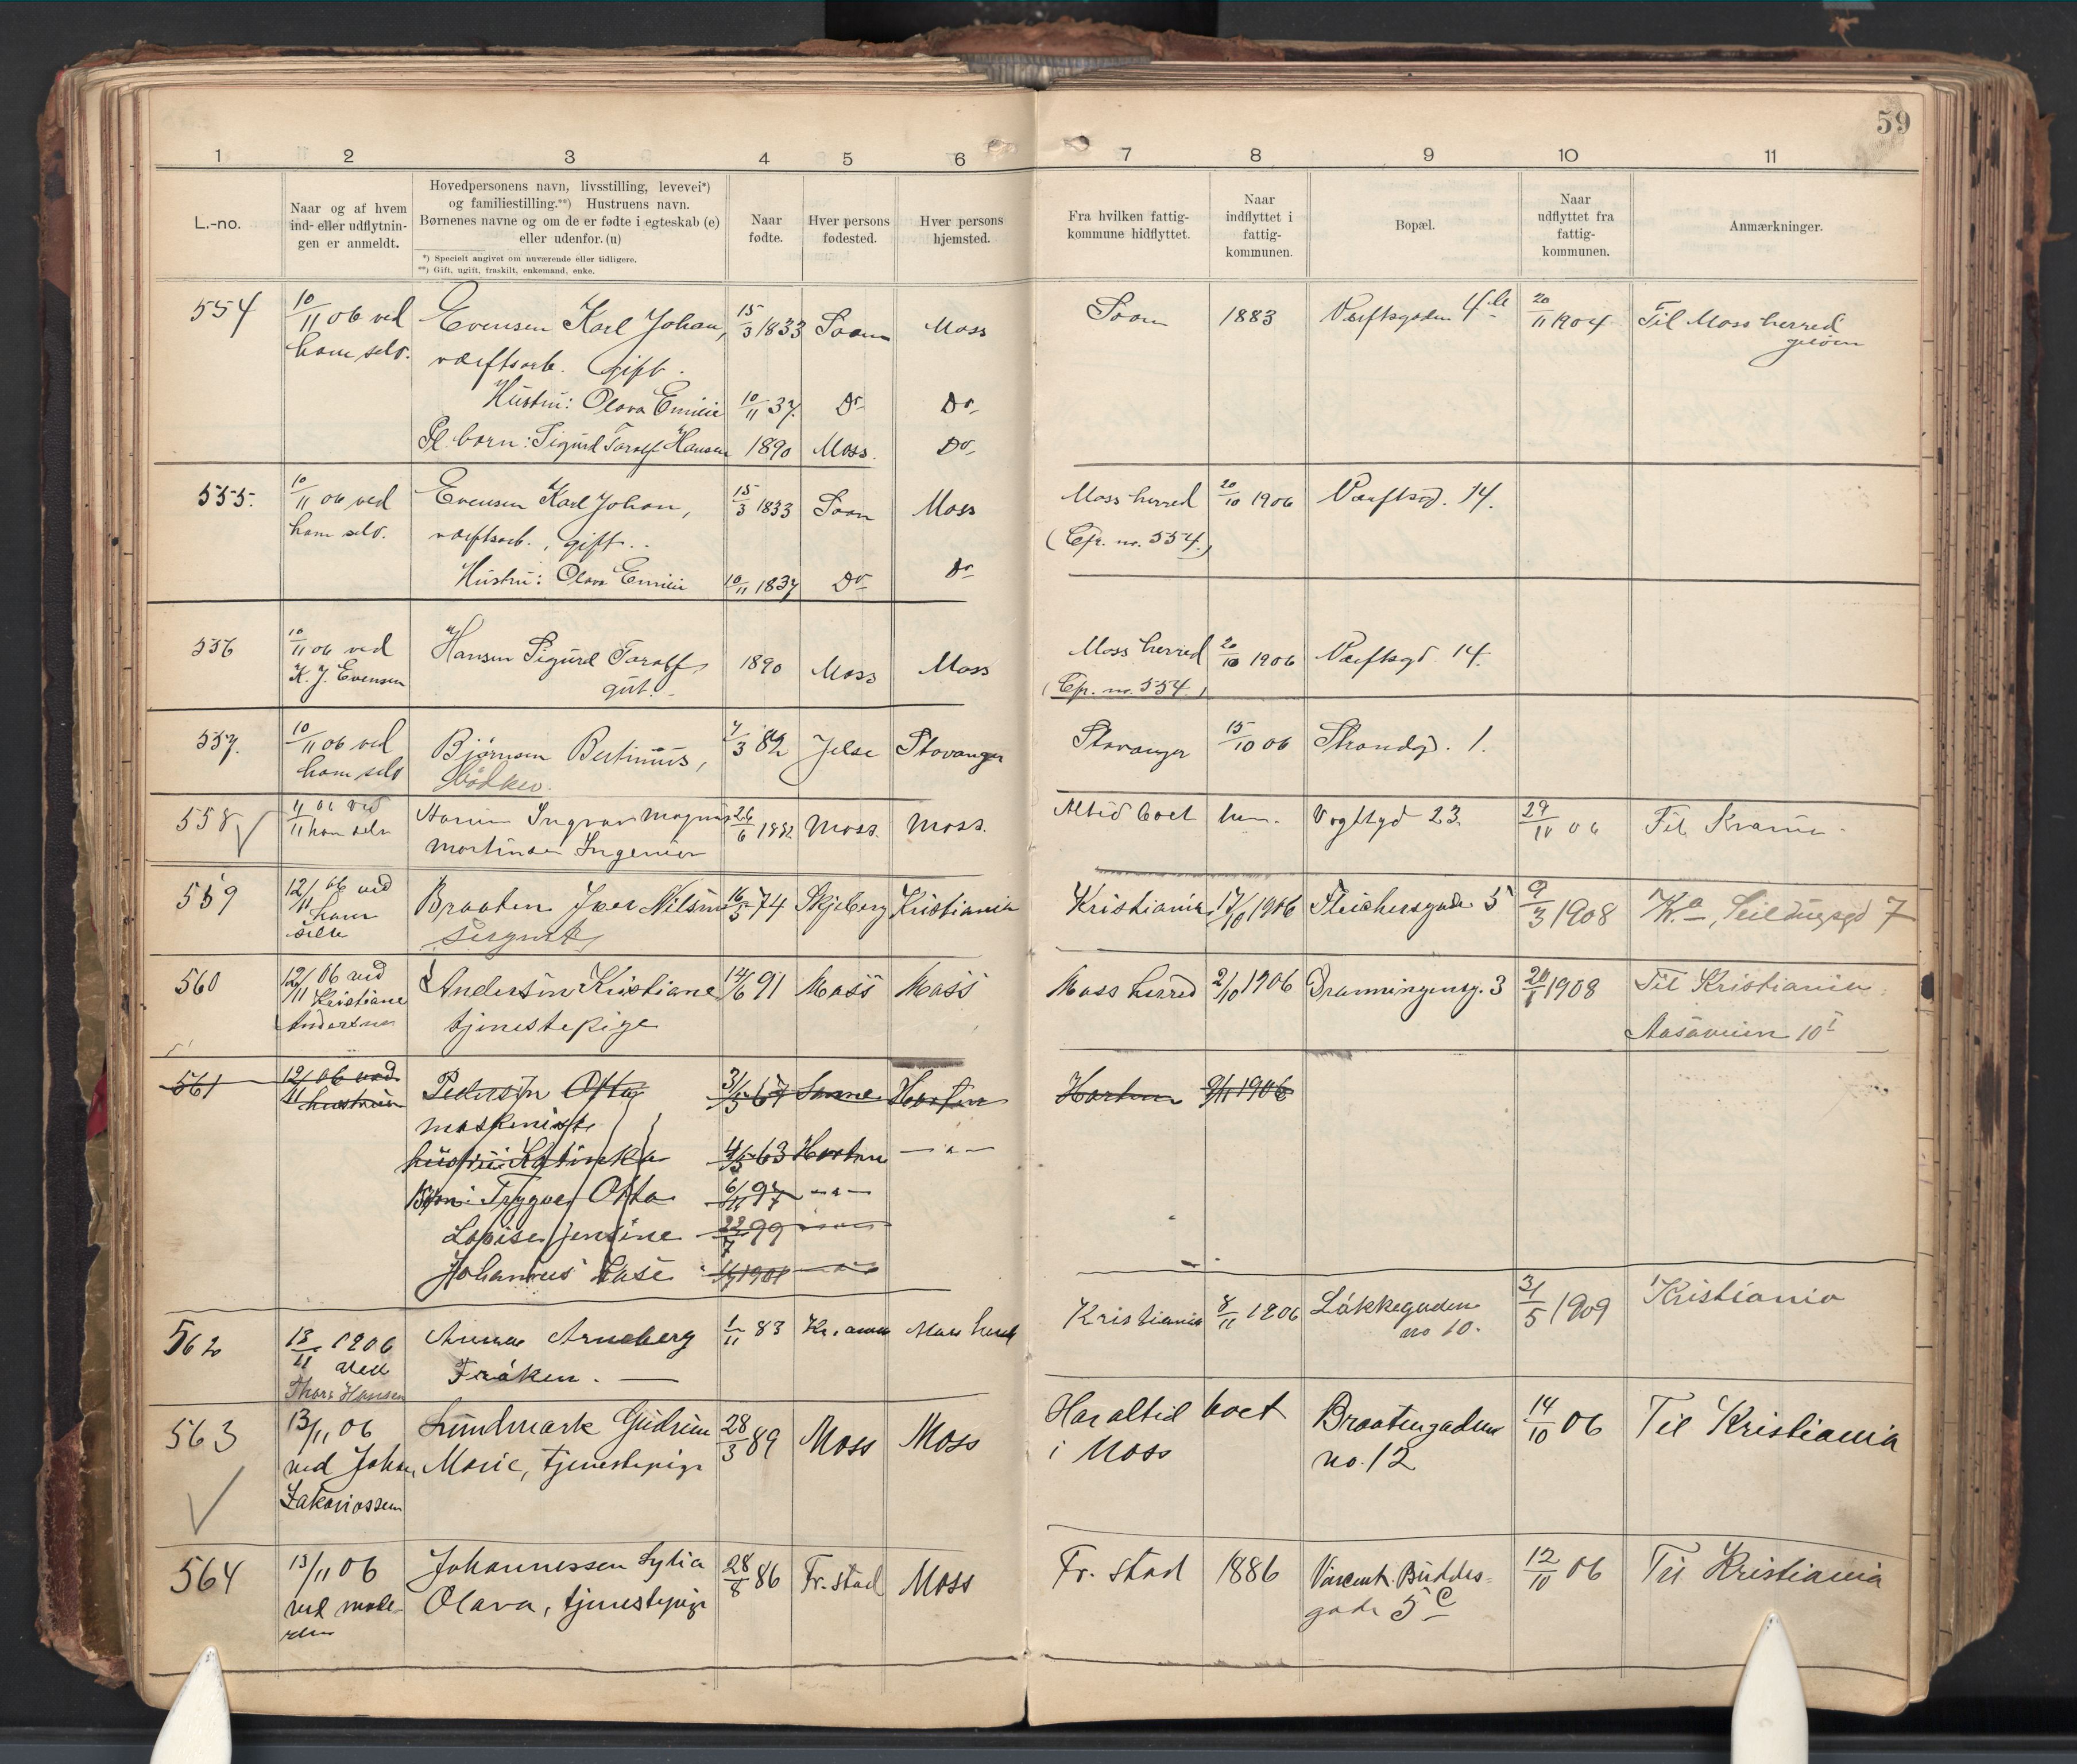 59
1 2 3 4 5 6 7 8 9 10 11
L.-no.
Naar og af hvem
ind- eller udflytnin-
gen er anmeldt.
Hovedpersonens navn, livsstilling, levevei*)
og familiestilling.**) Hustruens navn.
Børnenes navne og om de er fødte i egteskab (e)
eller udenfor. (u)
*) Specielt angivet om nuværende eller tidligere.
**) Gift, ugift, fraskilt, enkemand, enke.
Naar
fødte.
Hver persons
fødested.
Hver persons
hjemsted.
Fra hvilken fattig-
kommune hidflyttet.
Naar
indflyttet i
fattig-
kommunen.
Bopæl.
Naar
udflyttet fra
fattig-
kommunen.
Anmærkninger.
554 10/11 06 ved Evensen Karl Johan, 15/3 1833 Soon Moss Soon 1883 Værftsgaden 20/11 1904 Til Moss herred
ham selv. værftsarb. gift. Jeløen
Hustru: Olava Emilie 10/11 37. Do Do
Pl. barn: Sigurd Taralf Hansen 1890 Moss. Do
555. 10/11 06 ved Evensen Karl Johan, 15/3 1833 Soon Moss Moss herred 20/10 1906 Værftsgd. 14.
ham selv. værftsarb., gift. (Cfr. no. 554.)
Hustru: Olava Emilie 10/11 1837 Do Do
556 10/11 06 ved Hansen Sigurd Taralf, 1890 Moss Moss Moss herred 20/10 1906 Værftsgd. 14.
K. J. Evensen gut. (Cfr. no. 554.)
557. 10/11 06 ved Bjørnsen Bertinius, 7/3 82 Jelse Stavanger Stavanger 15/10 06 Strandgd. 1.
ham selv Bødker.
558 11/11 06 ved Ingvar Magnus 26/6 Moss. Moss. Altid boet her. Vogtsgd 23. 29/10 06 Til Krania.
ham selv Martinsen Ingeniør
559 12/11 06 ved Braaten Iver Nilsen 16/5 74 Skjeberg Kristiania Kristiania 17/10 1906 5 9/3 1908 Kr.a, Seildugsgd 7
ham
selv Sergent
560 12/11 06 ved Andersen Kristiane 14/6 91 Moss Moss Moss herred 2/10 1906 Dronningensg. 3 20/1 1908 Til Kristiania.
Kristiane
Andersen tjenestepige Aasaveien 10 I
561 12/11 06 ved Pedersen Otto 31/5 67 Horten Horten 9/11 1906
hustruen maskinist
hustru: Katinka 4/5 63 Horten — " —
Børn: Trygve Otto 6/11 97 — " —
Lovise Jensine 22/7 99 — " —
Johannes 1901 — " —
562 13/11 1906 Anna Arneberg 1/11 83 Kr.ania Moss herred Kristiania 8/11 1906 Løkkegaden 31/5 1909 Kristiania
ved no 10.
Thora Hansen Frøken. —
563 13/11 06 Lundmark Gudrun 28/3 89 Moss Moss Har altid boet Braatengaden 14/10 06 Til Kristiania
ved Johan Marie, tjenestepige i Moss no. 12
Zakariassen
564 13/11 06 Johannessen Sylia 28/8 86 Fr. stad Moss Fr. stad 1886 Vincent Buddes- 12/10 06 Til Kristiania
ved mode- Olava, tjenestepige gade 5 C
ren